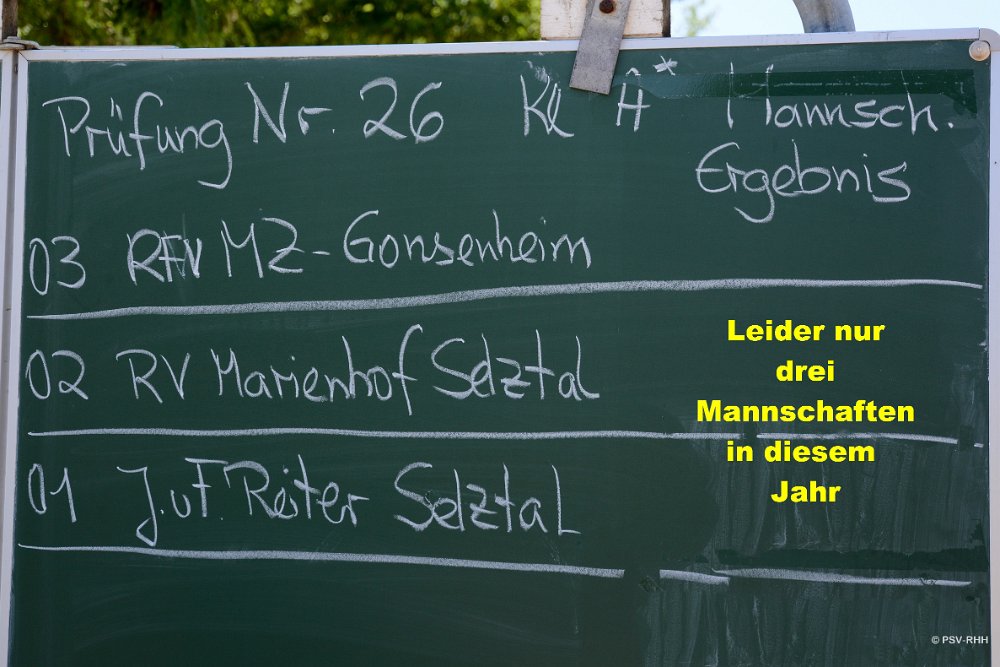 Prüfung Nr. 26 Kl A* Mannsch.
Ergebnis
03 RFV MZ-Gonsenheim
02 RV Marienhof Selztal
01 J.u.F. Reiter Selztal
Leider nur
drei
Mannschaften
in diesem
Jahr
© PSV-RHH